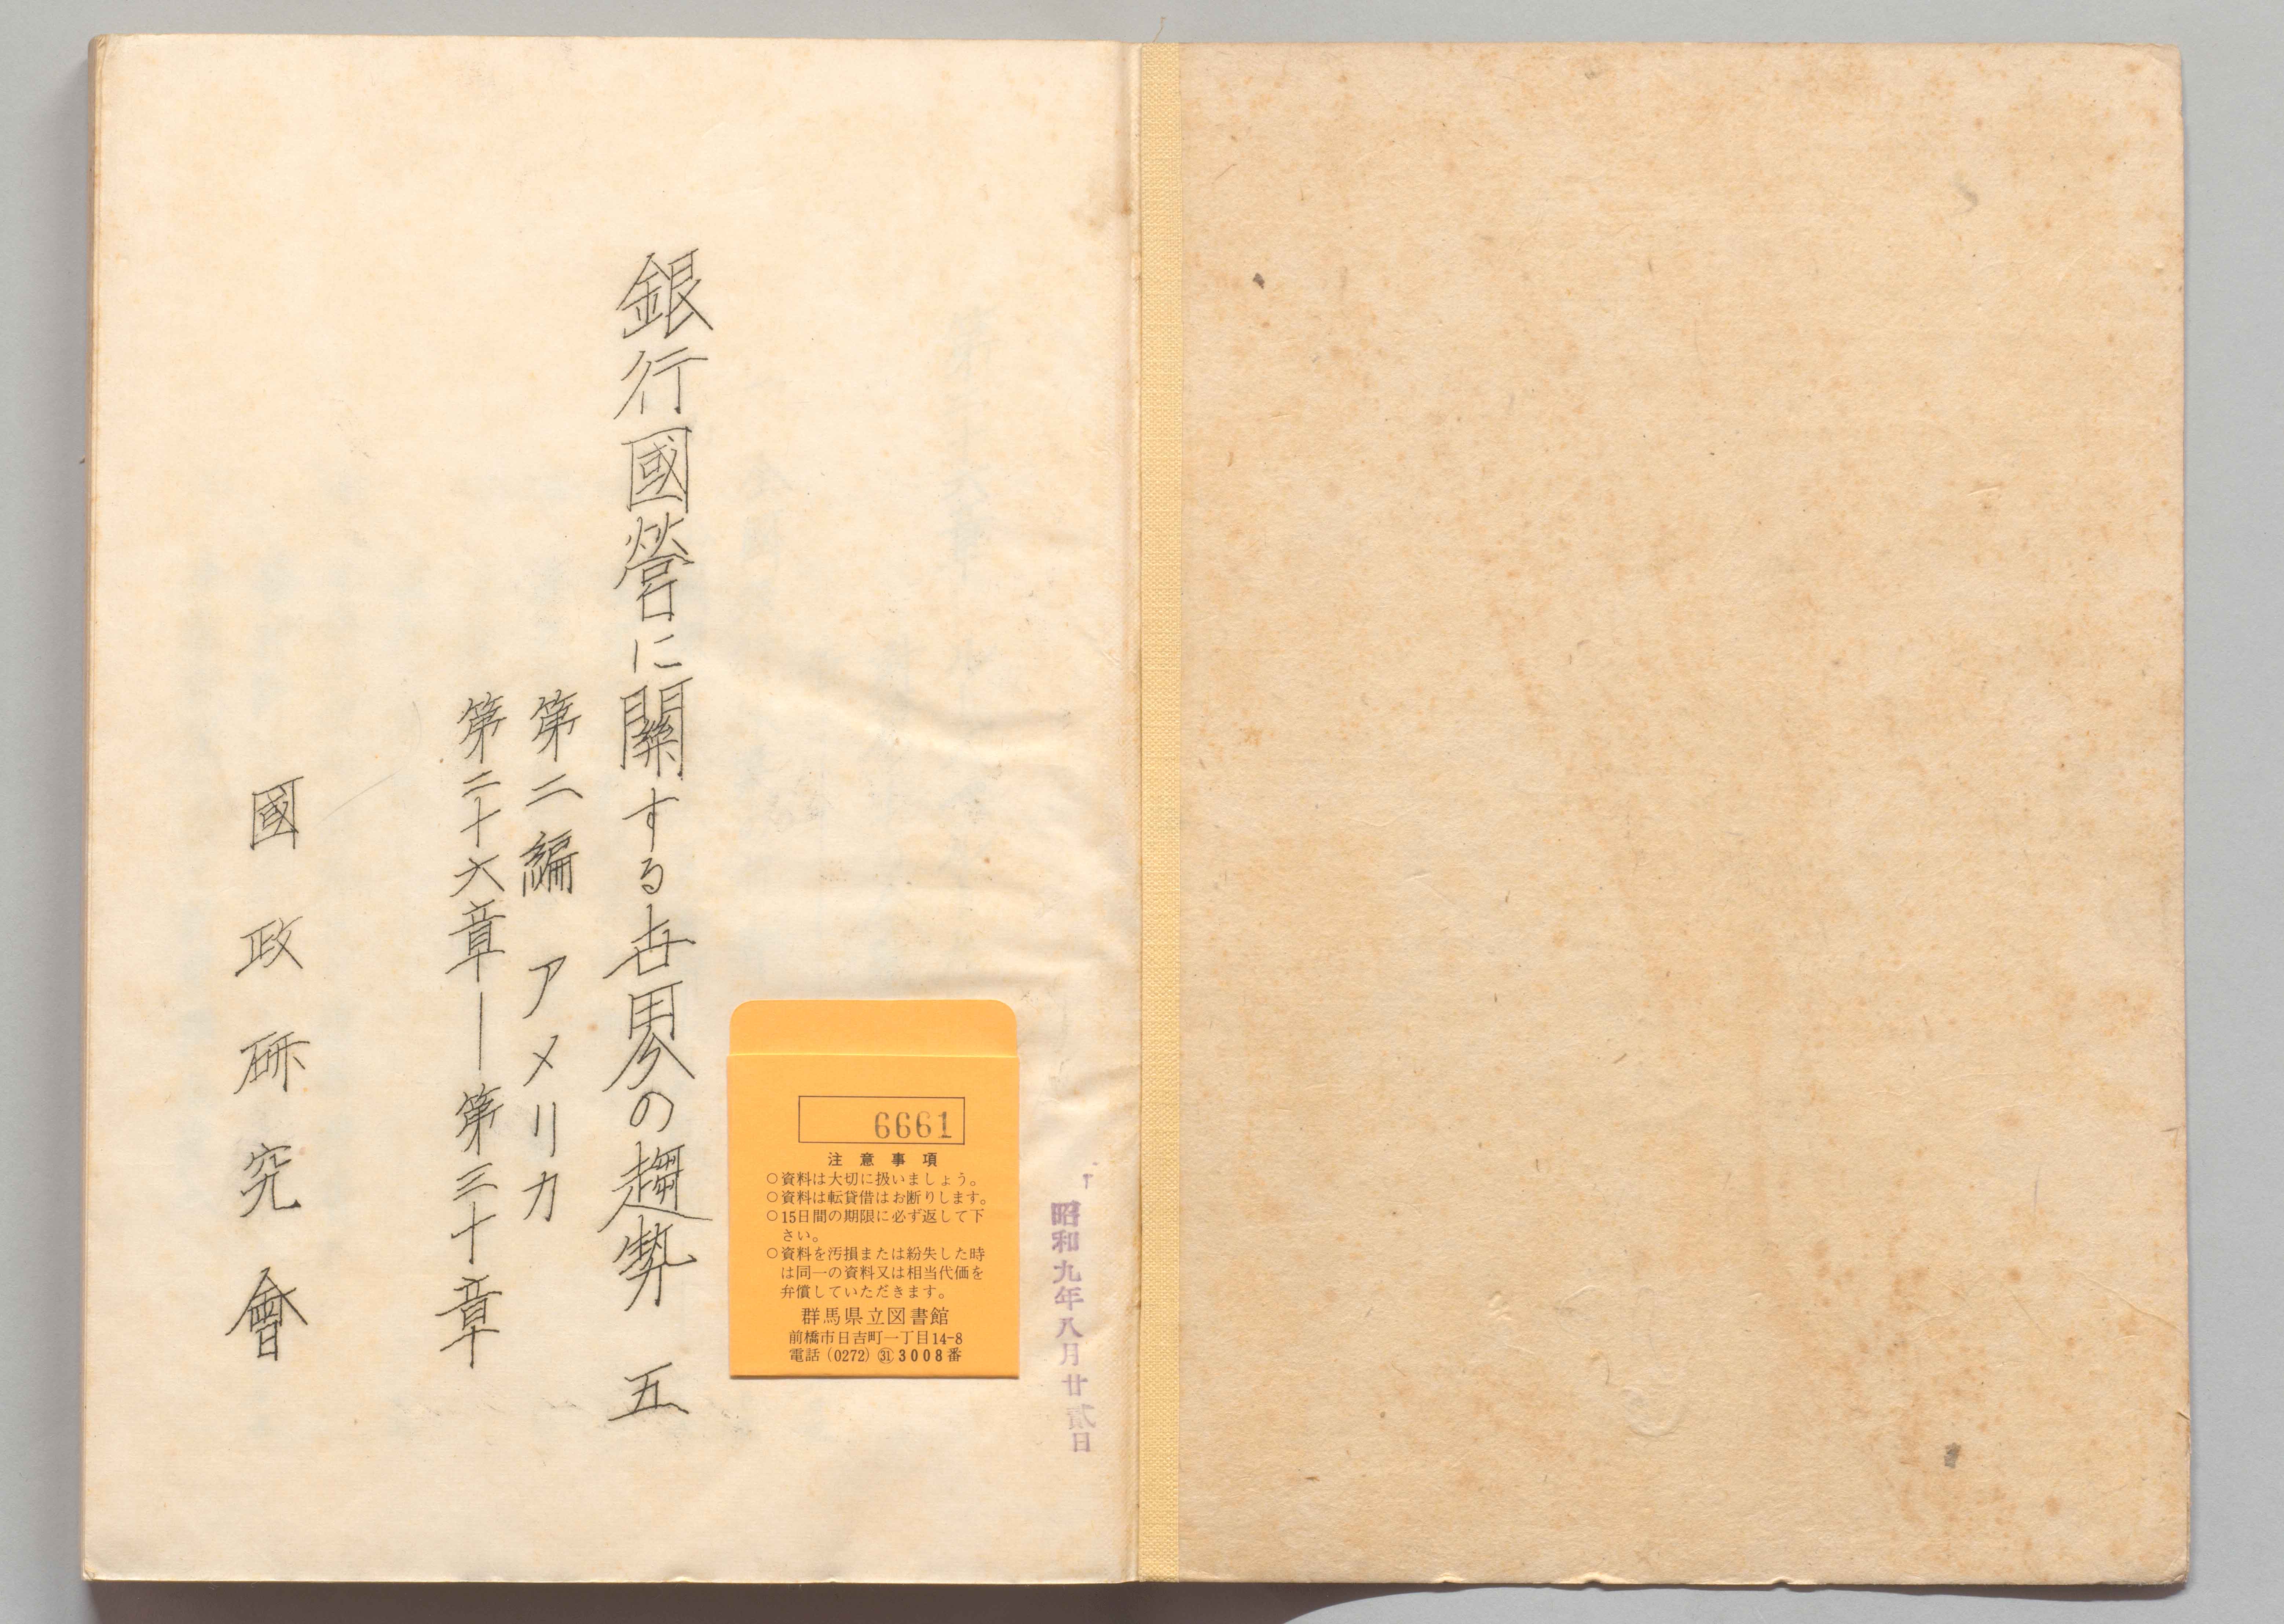 昭和九年八月廿貳日
6661
注意事項
○資料は大切に扱いましょう。
○資料は転貸借はお断りします。
○15日間の期限に必ず返して下
さい。
○資料を汚損または紛失した時
は同一の資料又は相当代価を
弁償していただきます。
群馬県立図書館
前橋市日吉町一丁目14-8
電話(0272)㉛3008番
銀行國營に關する世界の趨勢 五
第二編 アメリカ
第二十六章—第三十章
國政硏究會